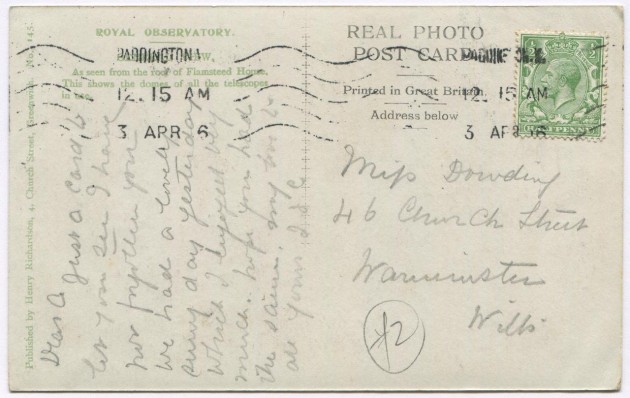 ROYAL OBSERVATORY.
VIEW,
As seen from the roof of Flamsteed House.
This shows the domes of all the telescopes
in use
REAL PHOTO
POST CARD
Printed in Great Britain
Address below
PADDINGTON
12. 15 AM
3 APR 6
PADDINGTON
12. 15 AM
3 APR 16
HALFPENNY
Published by Henry Richardson, 4, Church Street, Greenwich. No.
Dear
Just a card to
let you see I have
not forgotten you
we had a lovely
sunny day yesterday
which I enjoyed very
much. hope you had
the same. my love to
all yours
Miss Dowding
46 Church Street
Warminster
Wilts